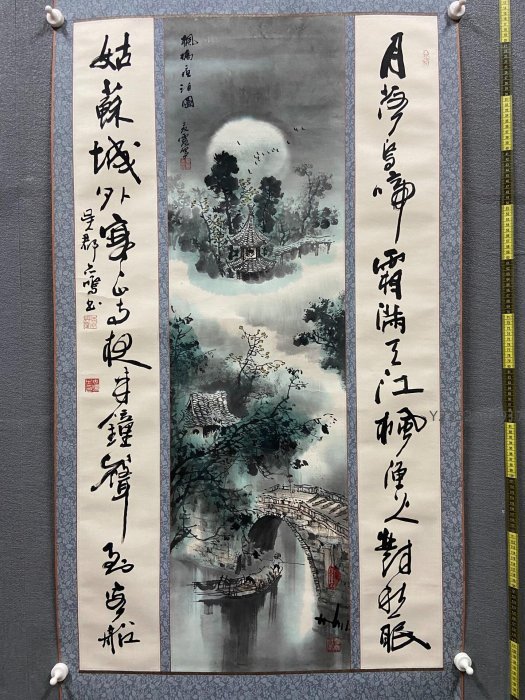 月落烏啼霜滿天江楓漁火對愁眠
楓橋夜泊圖
姑蘇城外寒山寺夜半鐘聲到客船